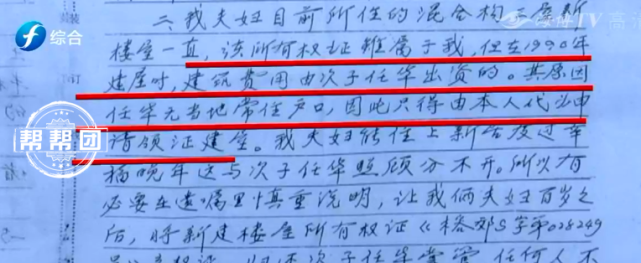 综合
帮帮团
二、我夫妇目前所住的混合构二层新
楼屋一直,该所有权证虽属于我,但在1990年
建屋时,建筑费用由次子任华出资的。其原因
任华无当地常住户口,因此只得由本人代为申
请领证建屋。我夫妇能住上新舍度过幸
福晚年这与次子任华照顾分不开。所以有
必要在遗嘱里慎重说明,让我俩夫妇百岁之
后,将新建楼屋所有权证《榕郊S字第028249
次子任华掌管,任何人不